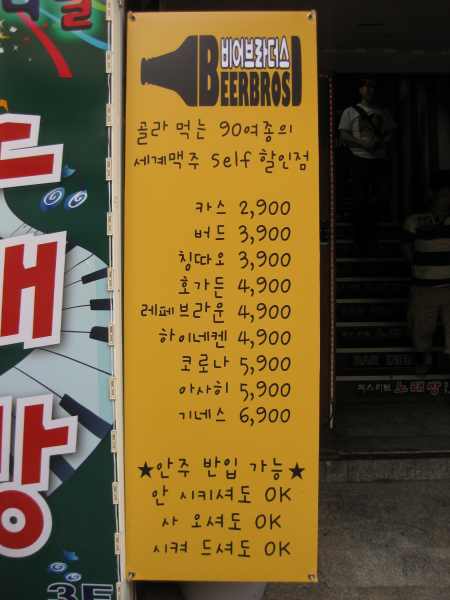 비어브라더스
BEERBROS
골라 먹는 90여종의
세계맥주 self 할인점
카스 2,900
버드 3,900
칭따오 3,900
호가든 4,900
레페브라운 4,900
하이네켄 4,900
코로나 5,900
아사히 5,900
기네스 6,900
★안주 반입 가능★
안 시키셔도 OK
사 오셔도 OK
시켜 드셔도 OK
노래방
BAR
노래방
3F